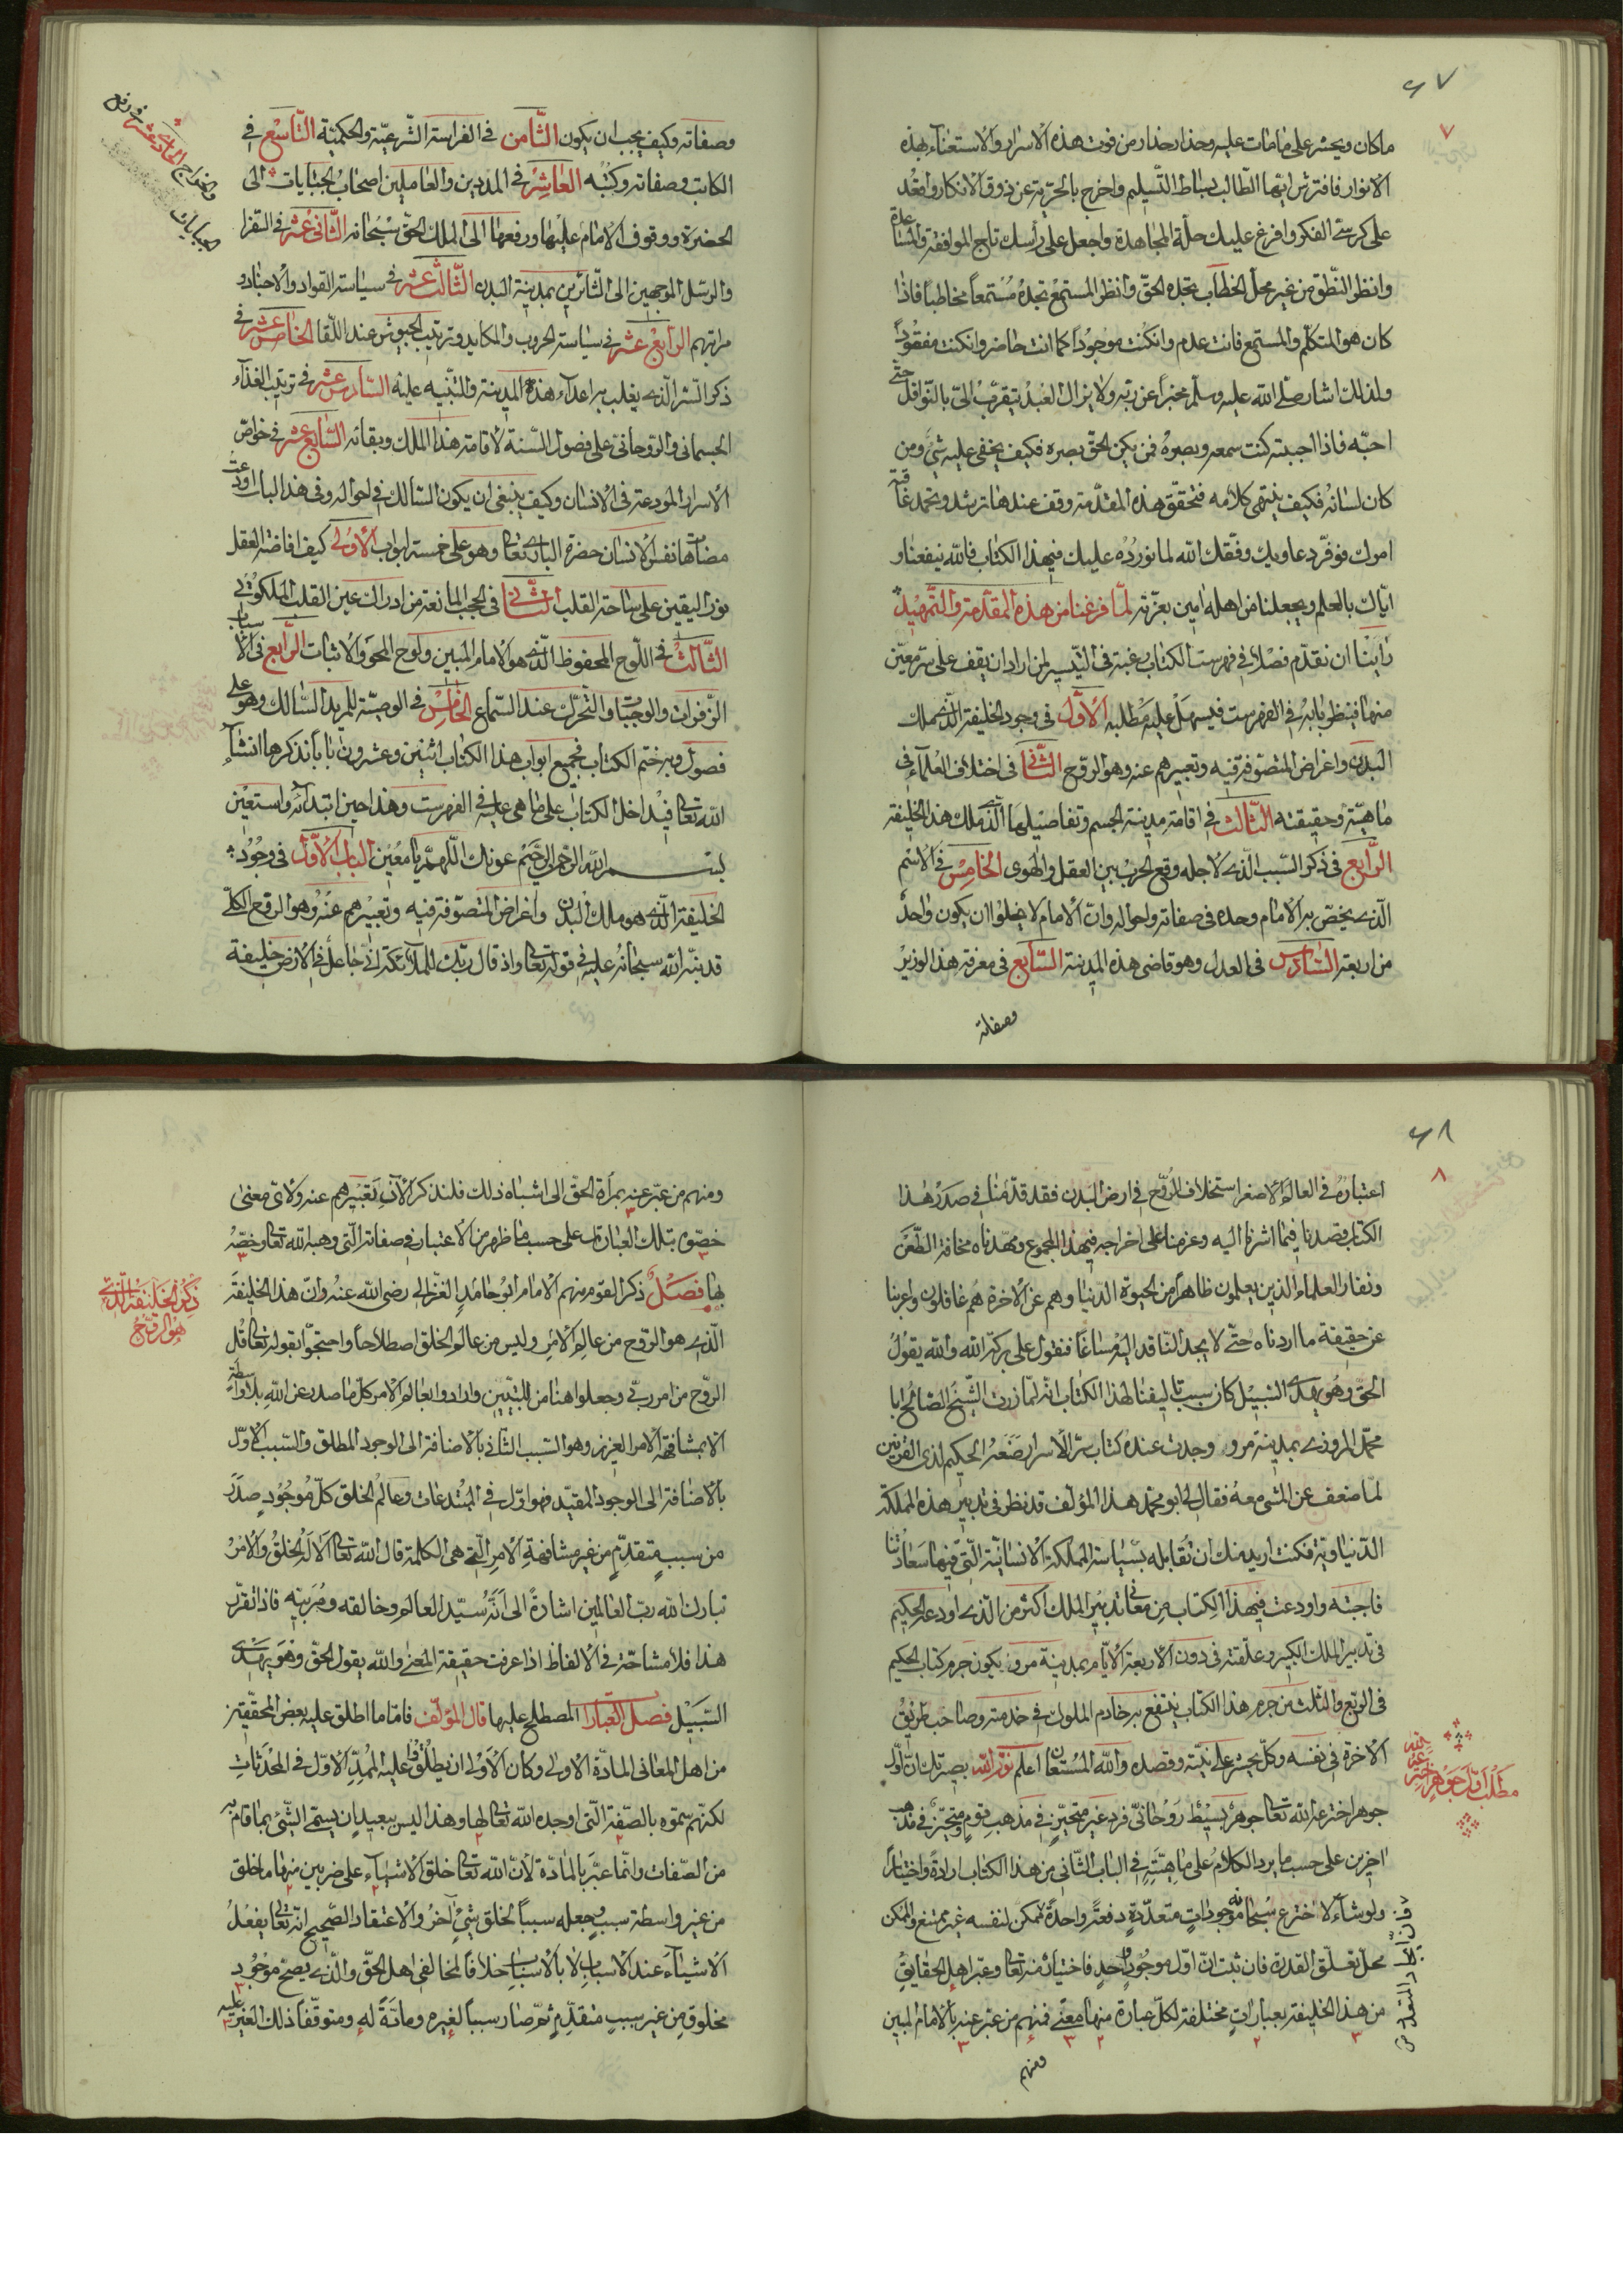 ٦٧
٧
ما كان ويحسر على ما مات عليه وحذار حذار من فوت هذه الاسرار والاستغناء بهذه
الانوار فافترش ايها الطالب بساط التسليم واخرج بالحرية عن ذوق الانكار واقعد
على كرسى الفكر وافرغ عليك حلة المجاهدة واجعل على رأسك تاج الموافقة والمساعدة
وانظر النطق من غير محل الخطاب تجده الحق وانظر المستمع تجده مستمعا مخاطبا فاذا
كان هو المتكلم والمستمع فانت عدم وان كنت موجوداً كما انت حاضر وان كنت مفقوداً
ولذلك اشار صلى الله عليه وسلم مخبراً عن ربه ولا يزال العبد يتقرب الىّ بالنوافل حتى
احبه فاذا احببته كنت سمعه وبصره فمن يكن الحق بصره فكيف يخفى عليه شئ ومن
كان لسانه فكيف ينتهى كلامه فتحقق هذه المقدمة وقف عندها ترشد وتحمد عاقبة
امرك فوفر دعاويك وفقك الله لما نورده عليك فى هذا الكتاب فالله ينفعنا و
اياك بالعلم ويجعلنا من اهله امين بعزته لما فرغنا من هذه المقدمة والتمهيد
رأينا ان نقدم فصلا فى فهرست الكتاب رغبة فى التيسير لمن اراد ان يقف على سر معين
منها فينظر بابه فى الفهرست فيسهل عليه مطلبه الأوّل فى وجود الخليفة الذى هو ملك
البدن واغراض المتصوفة فيه وتعبيرهم عنه وهو الروح الثّانى فى اختلاف العلماء فى
ماهيته وحقيقته الثّالث فى اقامة مدينة الجسم وتفاصيلها الذى ملك هذا الخليفة
الرّابع فى ذكر السبب الذى لاجله وقع الحرب بين العقل والهوى الخامس فى الاسم
الذى يخص به الامام وحده فى صفاته واحواله وان الامام لا يخلوا ان يكون واحداً
من اربعة السّادس فى العدل وهو قاضى هذه المدينة السّابع فى معرفة هذا الوزير
وصفاته
وصفاته وكيف يجب ان يكون الثّامن فى الفراسة الشرعية والحكمية التّاسع فى
الكاتب وصفاته وكتبه العاشر فى المددين والعاملين اصحاب الجبايات الى
الحضرة ووقوف الامام عليها ورفعها الى الملك الحق سبحانه الثّانى عشر فى السفرا
والرسل الموجهين الى الثائرين بمدينة البدن الثّالث عشر فى سياسة القواد والاجناد و
مراتبهم الرّابع عشر فى سياسة الحروب والمكايد وترتيب الجيوش عند اللقا الخامس عشر فى
ذكر السر الذى يغلب به اعداء هذه المدينة والتنبيه عليه السّادس عشر فى ترتيب الغذاء
الجسمانى والروحانى على فصول السنة لاقامة هذا الملك وبقائه السّابع عشر فى خواص
الاسرار المودعة فى الانسان وكيف ينبغى ان يكون السالك فى احواله وفى هذا الباب اودعت
مضاهاة نفس الانسان حضرة البارى تعالى وهو على خمسة ابواب الأوّل كيف افاضة العقل
نور اليقين على ساحة القلب الثّانى فى الحجب المانعة من ادراك عين القلب الملكوتى
الثّالث فى اللوح المحفوظ الذى هو الامام المبين ولوح المحو والاثبات الرّابع فى الاسباب
الزفرات والوجبات والتحرك عند السماع الخامس فى الوصية للمريد السالك وهو على
فصول وبه ختم الكتاب فجميع ابواب هذا الكتاب اثنين وعشرون بابا نذكرها انشاء
الله تعالى فى داخل الكتاب على ما هى عليه فى الفهرست وهذا حين ابتدائه واستعين
بسم الله الرحمن الرحيم عونك اللهم يا معين الباب الأوّل فى وجود
الخليفة الذى هو ملك البدن واغراض المتصوفة فيه وتعبيرهم عنه وهو الروح الكلى
قد نبه الله سبحانه عليه فى قوله تعالى واذ قال ربك للملائكة انى جاعل فى الارض خليفة
٦٨
٨
اعتباره فى العالم الاصغر استخلاف الروح فى ارض البدن فقد قدمنا فى صدر هذا
الكتاب وقصدنا فيما اشرنا اليه وعزمنا على اخراجه فى هذا المجموع ومهدناه مخافة الطعن
ونفار العلماء الذين يعلمون ظاهرا من الحيوة الدنيا وهم عن الاخرة هم غافلون واعربنا
عن حقيقة ما اردناه حتى لا يجد الناقد اليه مساغا فنقول على بركة الله والله يقول
الحق وهو يهدى السبيل كان سبب تأليفنا لهذا الكتاب انه لما زرت الشيخ الصالح ابا
محمد المروزى بمدينة مرور وجدت عنده كتاب سر الاسرار صنعه الحكيم لذى القرنين
لما ضعف عن المشى معه فقال لى ابو محمد هذا المؤلف قد نظر فى تدبير هذه المملكة
الدنياوية فكنت اريد منك ان تقابله بسياسة المملكة الانسانية التى فيها سعادتنا
فاجبته واودعت فى هذا الكتاب من معانى تدبير الملك اكثر من الذى اودعه الحكيم
فى تدبير الملك الكبير وعلقته فى دون الاربعة الايام بمدينة مرور يكون جرم كتاب الحكيم
فى الربع والثلث من جرم هذا الكتاب ينتفع به خادم الملوك فى خدمته وصاحب طريق
الاخرة فى نفسه وكل يحشر على نيته وقصده والله المستعان اعلم نور الله بصيرتك ان اول
جوهر اخترعه الله تعالى جوهر بسيط روحانى فرد غير متحيز فى مذهب قوم ومتحيز فى مذهب
اخرين على حسب ما يرد الكلام على ماهيته فى الباب الثانى من هذا الكتاب ارادة واختياراً
ولو شاء لاخترع سبحانه موجودات متعددة دفعة واحدة ممكن لنفسه غير ممتنع والممكن
محل تعلق القدرة فان ثبت ان اول موجود واحد فاختيار منه تعالى وعبر اهل الحقايق
من هذا الخليفة بعبارات مختلفة لكل عبارة منها معنى فمنهم من عبر عنه بالامام المبين
ومنهم
ومنهم من عبر عنه بمرآة الحق الى اشباه ذلك فلنذكر الآن تعبيرهم عنه ولاى معنى
خصوه بتلك العبارات على حسب ما ظهر من الاعتبار فى صفاته التى وهبه الله تعالى وخصّه
بها فصل ذكر القوم منهم الامام ابو حامد الغزالى رضى الله عنه وان هذا الخليفة
الذى هو الروح من عالم الامر وليس من عالم الخلق اصطلاحا واحتجوا بقوله تعالى قل
الروح من امر ربى وجعلوا هنا من للتبيين وارادوا بعالم الامر كل ما صدر عن الله بلا واسطة
الا بمشافهة الامر العزيز وهو السبب الثانى بالاضافة الى الوجود المطلق والسبب الاول
بالاضافة الى الوجود المقيد فهو اول فى المبتدعات وعالم الخلق كل موجود صدر
من سبب متقدم من غير مشافهة الامر التى هى الكلمة قال الله تعالى الا له الخلق والامر
تبارك الله رب العالمين اشارة الى انه سيد العالم وخالقه ومربيه فاذا تقرر
هذا فلا مشاحة فى الالفاظ اذا عرفت حقيقة المعنى والله يقول الحق وهو يهدى
السبيل فصل العبارا المصطلح عليها قال المؤلف فاما ما اطلق عليه بعض المحققين
من اهل المعانى المادة الاولى وكان الاولى ان يطلقوا عليه الممد الاول فى المحدثات
لكنهم سموه بالصفة التى اوجده الله تعالى لها وهذا ليس ببعيد ان يسمى الشئ بما قام به
من الصفات وانما عبر بالمادة لان الله تعالى خلق الاشياء على ضربين منها ما خلق
من غير واسطة سبب وجعله سببا لخلق شئ آخر والاعتقاد الصحيح انه تعالى يفعل
الاشياء عند الاسباب لا بالاسباب خلافا لمخالفى اهل الحق والذى يصح موجود
مخلوق من غير سبب متقدم ثم صار سببا لغيره ومادة له ومتوقفا ذلك الغير عليه
ذكر الخليفة الذى
هو الروح